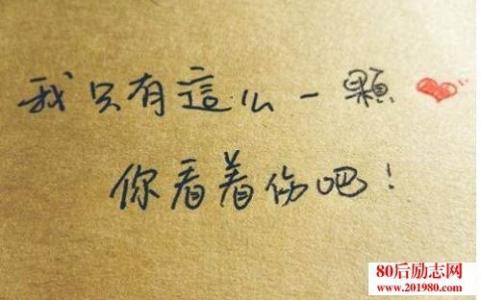 我只有這么一顆❤
你看着伤吧！
80后励志网
www.201980.com